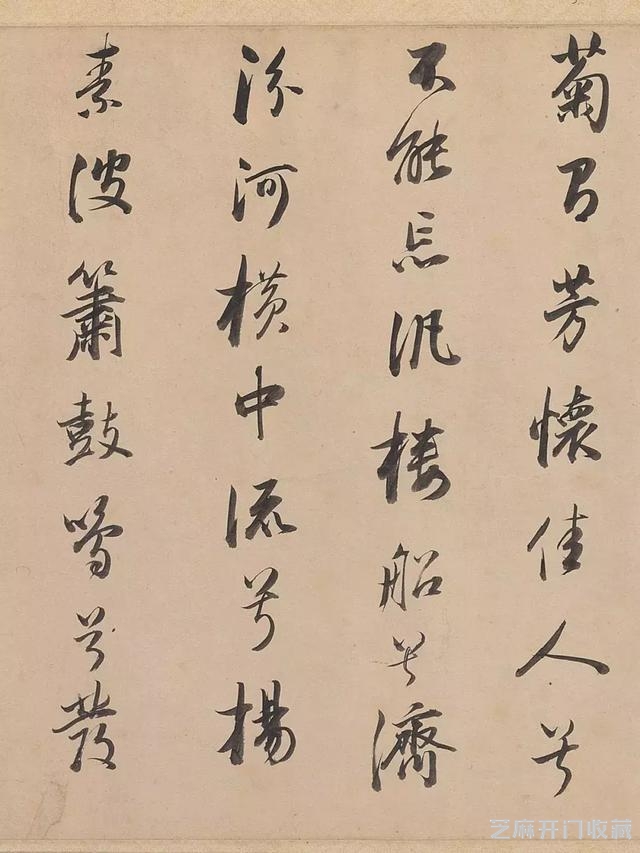 菊有芳懷佳人兮
不能忘汎樓船兮濟
汾河橫中流兮楊
素波簫鼓鳴兮發
芝麻开门收藏